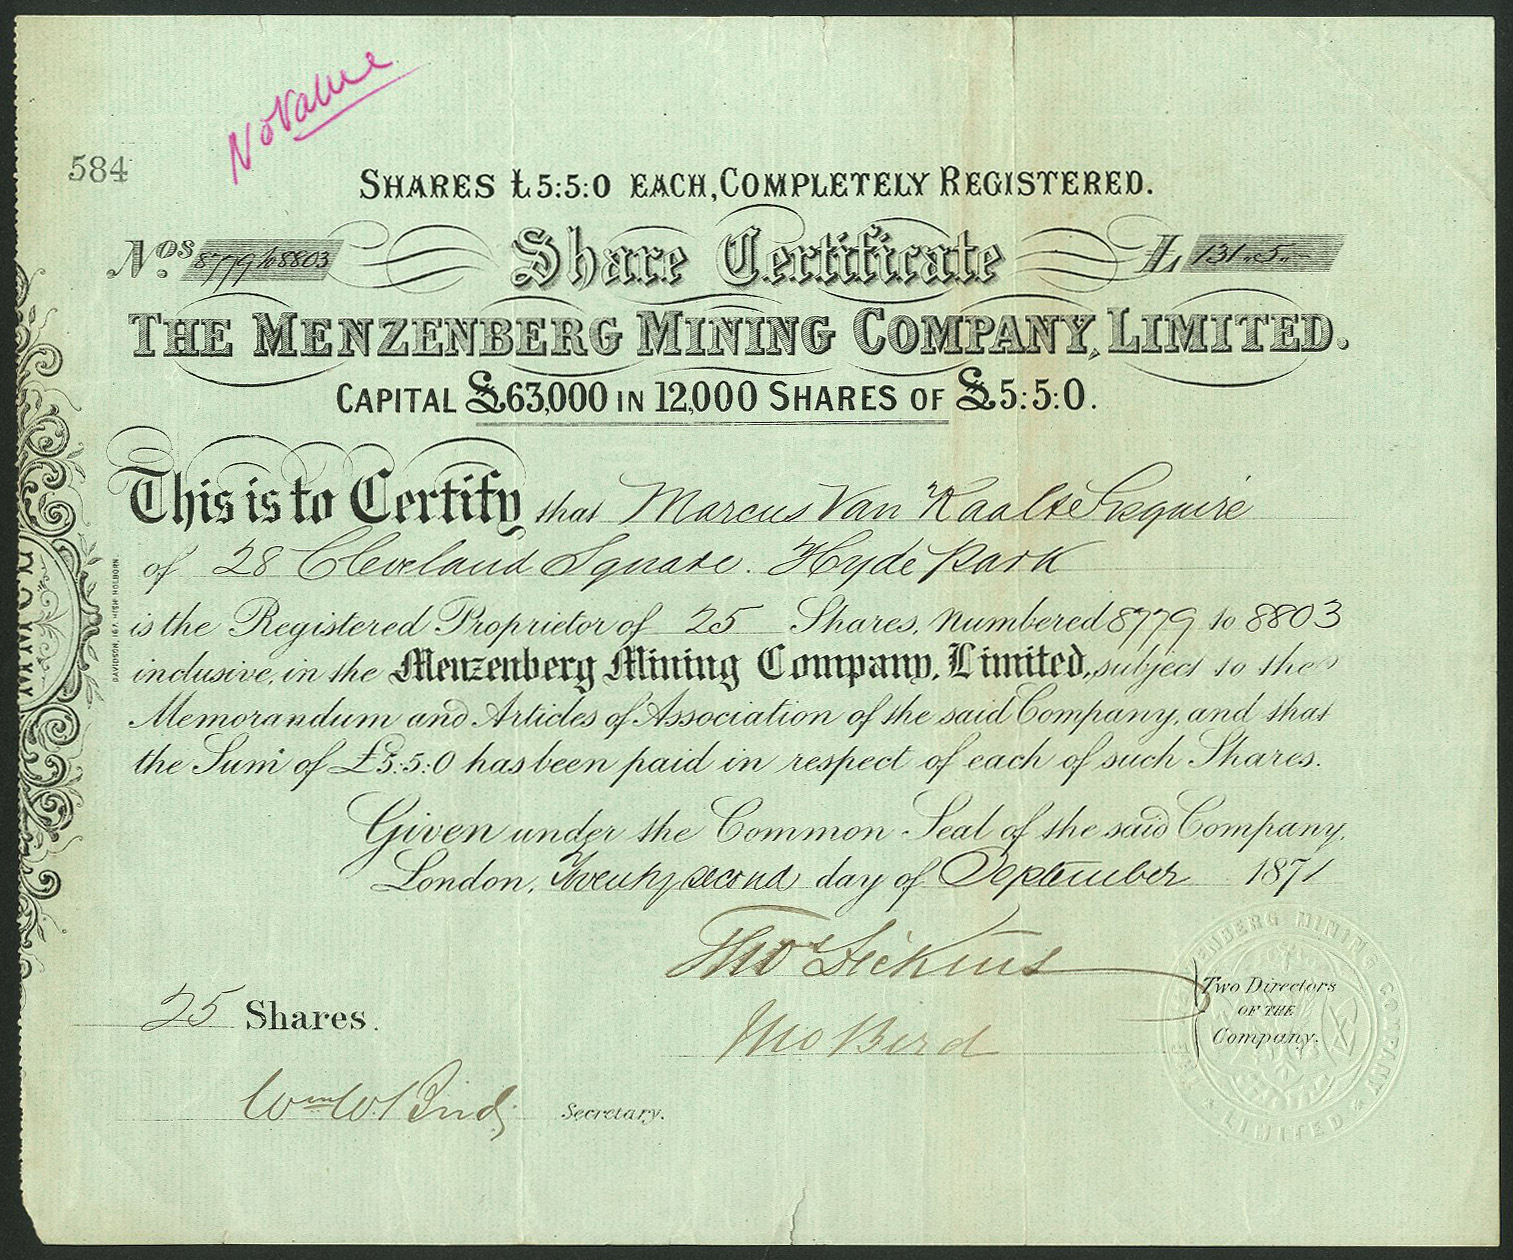 No Value
584
SHARES £5:5:0 EACH, COMPLETELY REGISTERED.
Nos. 8779 to 8803 Share Certificate £ 131.5.-
THE MENZENBERG MINING COMPANY, LIMITED.
CAPITAL £63,000 IN 12,000 SHARES OF £5:5:0.
This is to Certify that Marcus Van Raalte Esquire
of 28 Cleveland Square. Hyde Park
is the Registered Proprietor of 25 Shares, Numbered 8779 to 8803
inclusive, in the Menzenberg Mining Company, Limited, subject to the
Memorandum and Articles of Association of the said Company, and that
the Sum of £5:5:0 has been paid in respect of each of such Shares.
Given under the Common Seal of the said Company,
London, Twenty second day of September 1871
Thos Dickins
Two Directors
OF THE
Company.
25 Shares.
Tho Bird
Wm W. Bird Secretary.
DAVIDSON, 167, HIGH HOLBORN
THE MENZENBERG MINING COMPANY
LIMITED